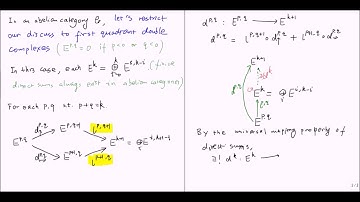 In an abelian category 𝒜, let's restrict
our discuss to first quadrant double
complexes (E^{p,q} = 0 if p<0 or q<0)
In this case, each E^k = ⊕ E^{i,k-i} (finite
direct sums always exist in abelian categories)
For each p,q st. p+q=k,
E^{p,q} d_↑^{p,q} E^{p,q+1} i^{p,q+1}
d_→^{p,q} E^{p+1,q} i^{p+1,q} E^{k+1} = ⊕_i E^{i,k+1-i}
d^{p,q} : E^{p,q} ⟶ E^{k+1}
d^{p,q} = i^{p,q+1} ∘ d_↑^{p,q} + i^{p+1,q} ∘ d_→^{p,q}
E^{k+1}
d^{p,q} ∃! d^k
E^k = ⊕_i E^{i,k-i}
i^{p,q}
E^{p,q}
By the universal mapping property of
direct sums,
∃! d^k : E^k ⟶